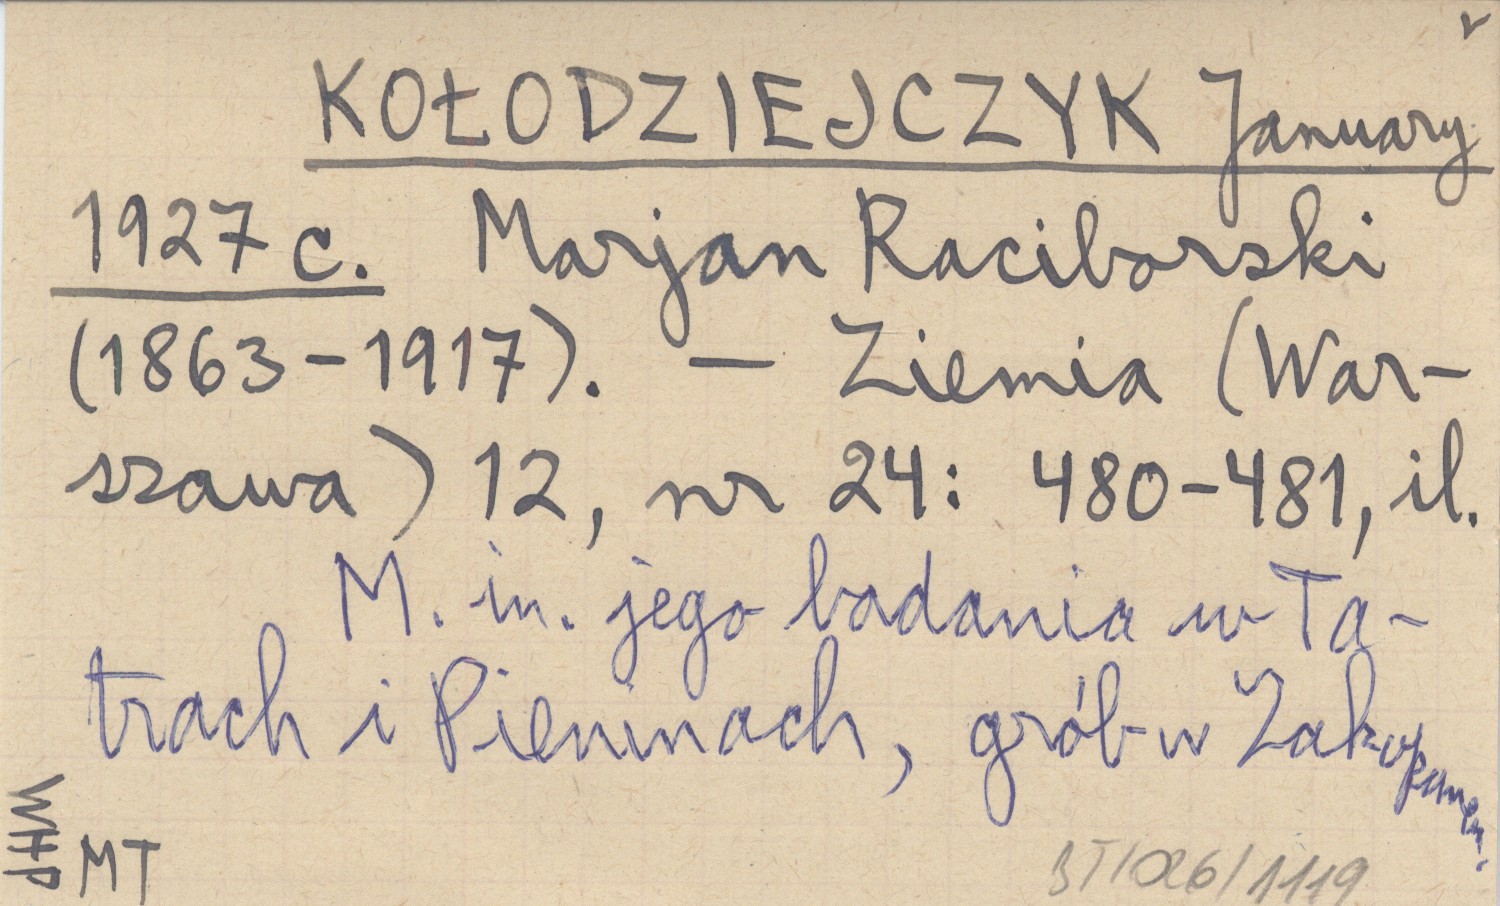 KOŁODZIEJCZYK January
1927 c. Marjan Raciborski
(1863-1917). — Ziemia (War-
szawa) 12, nr 24: 480-481, il.
M. in. jego badania w Ta-
trach i Pieninach, grób w Zakopanem.
WHP
MT
BT/026/1119